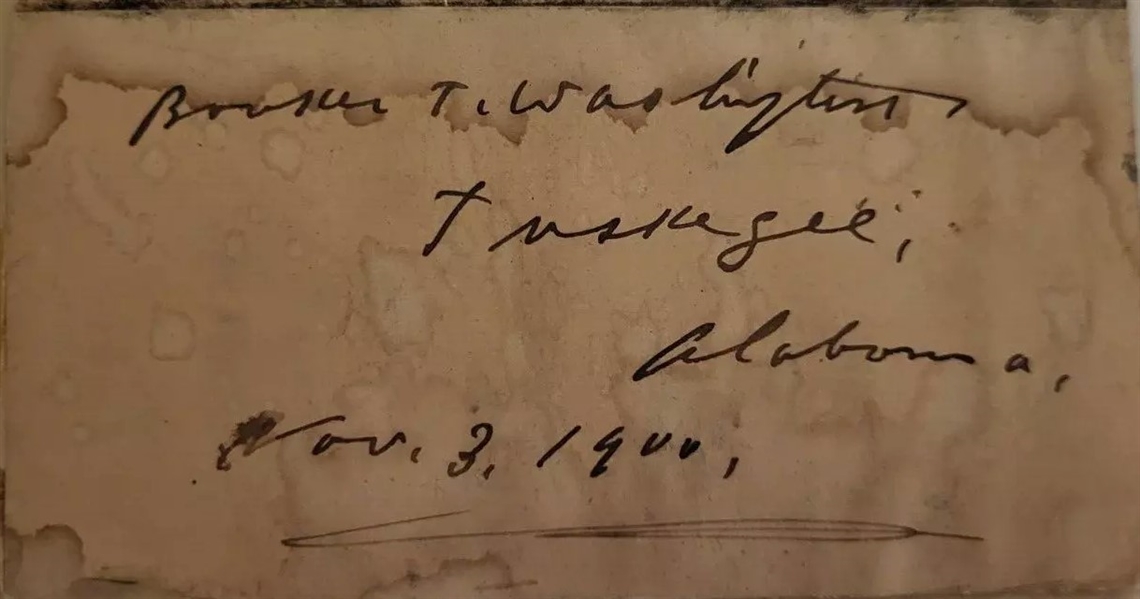 Booker T. Washington
Tuskegee,
Alabama,
Nov. 3, 1900,